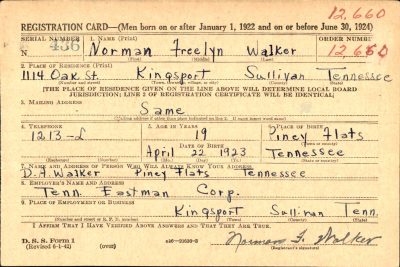 12,660
REGISTRATION CARD—(Men born on or after January 1, 1922 and on or before June 30, 1924)
SERIAL NUMBER 1. NAME (Print) ORDER NUMBER
N 436 Norman Freelyn Walker 12660
(First) (Middle) (Last)
2. PLACE OF RESIDENCE (Print)
1114 Oak St. Kingsport Sullivan Tennessee
(Number and street) (Town, township, village, or city) (County) (State)
[THE PLACE OF RESIDENCE GIVEN ON THE LINE ABOVE WILL DETERMINE LOCAL BOARD
JURISDICTION; LINE 2 OF REGISTRATION CERTIFICATE WILL BE IDENTICAL]
3. MAILING ADDRESS
Same
[Mailing address if other than place indicated on line 2. If same insert word same]
4. TELEPHONE 5. AGE IN YEARS 6. PLACE OF BIRTH
1213-L 19 Piney Flats
DATE OF BIRTH (Town or county)
April 22 1923 Tennessee
(Exchange) (Number) (Mo.) (Day) (Yr.) (State or country)
7. NAME AND ADDRESS OF PERSON WHO WILL ALWAYS KNOW YOUR ADDRESS
D.A. Walker Piney Flats Tennessee
8. EMPLOYER'S NAME AND ADDRESS
Tenn. Eastman Corp.
9. PLACE OF EMPLOYMENT OR BUSINESS
Kingsport Sullivan Tenn.
(Number and street or R. F. D. number) (Town) (County) (State)
I AFFIRM THAT I HAVE VERIFIED ABOVE ANSWERS AND THAT THEY ARE TRUE.
D. S. S. Form 1
(Revised 6-1-42) (over) Norman F. Walker
(Registrant's signature)